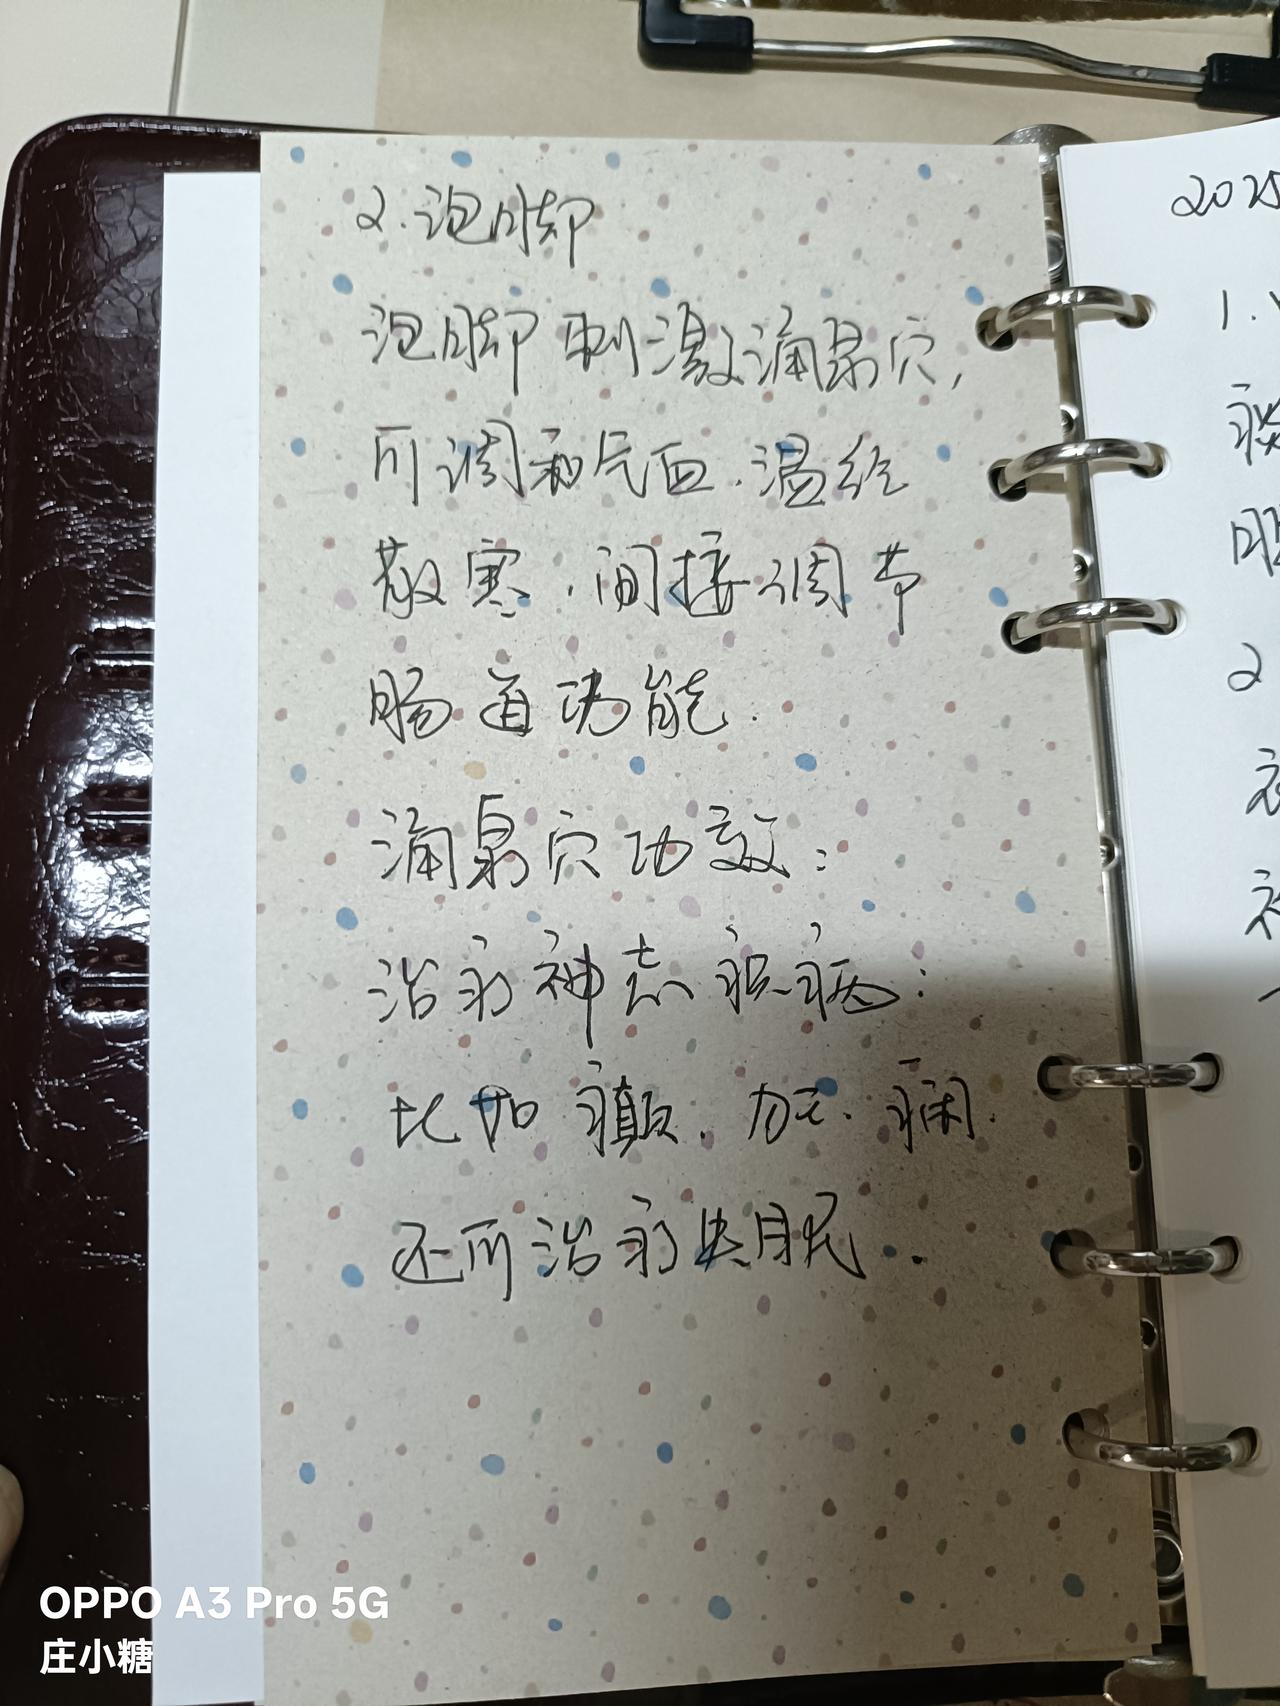 2.泡脚
泡脚刺激涌泉穴,
可调和气血.温经
散寒.间接调节
肠道功能.
涌泉穴功效:
治疗神志疾病:
比如癫.狂.痫.
还可治疗失眠.
2025
1.
2
OPPO A3 Pro 5G
庄小糖